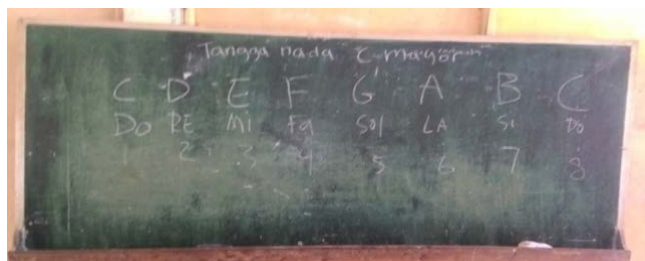 Tangga nada C mayor
C D E F G A B C
Do RE MI Fa Sol LA Si Do
1 2 3 4 5 6 7 8